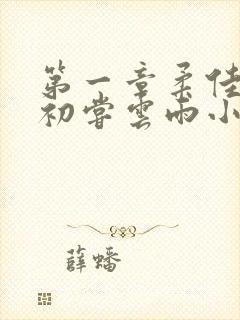 第一章柔佳
初尝雲雨小
薛蟠